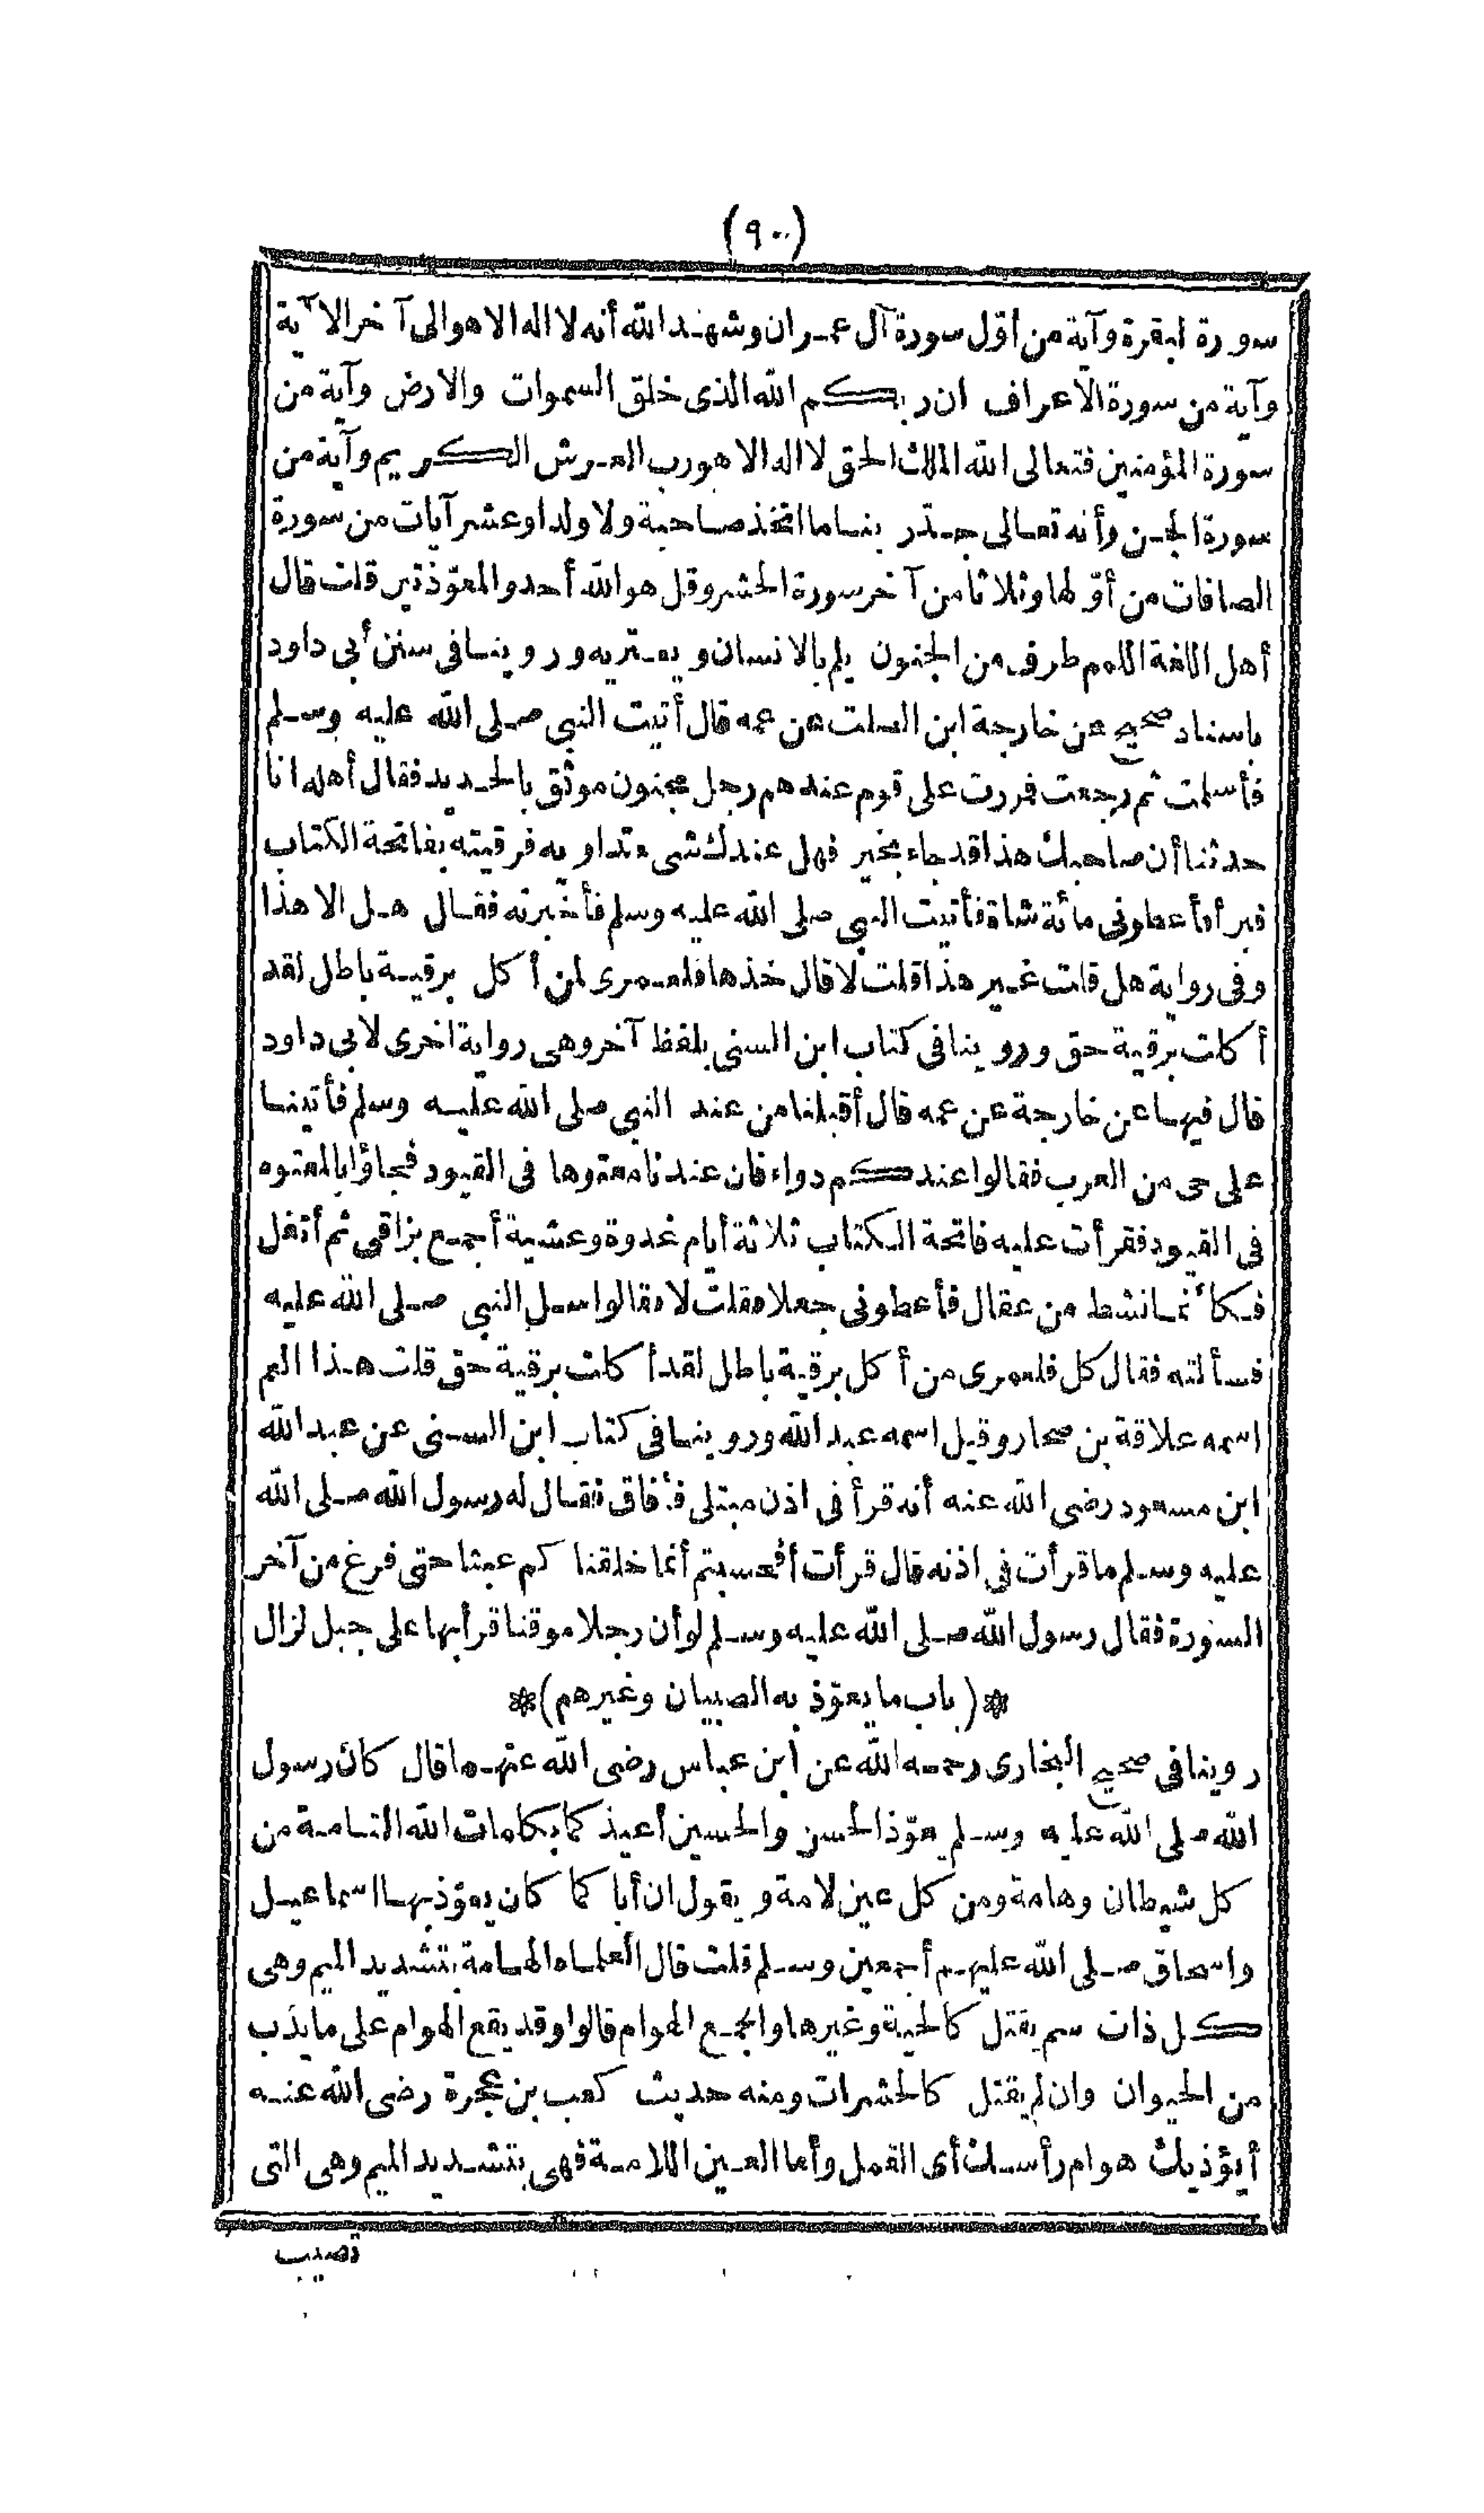 (٩٠)
سورة البقرة وآية من أوّل سورة آل عمران وشهد الله أنه لا اله الا هو الى آخر الآية
وآية من سورة الأعراف ان ربكم الله الذى خلق السموات والارض وآية من
سورة المؤمنين فتعالى الله الملك الحق لا اله الا هو رب العرش الكريم وآية من
سورة الجن وأنه تعالى جدّ ربنا ما اتخذ صاحبة ولا ولدا وعشر آيات من سورة
الصافات من أوّلها وثلاثا من آخر سورة الحشر وقل هو الله أحد والمعوّذتين قلت قال
أهل اللغة اللمم طرف من الجنون يلم بالانسان ويعتريه وروينا فى سنن أبى داود
باسناد صحيح عن خارجة ابن الصلت عن عمه قال أتيت النبى صلى الله عليه وسلم
فأسلمت ثم رجعت فمررت على قوم عندهم رجل مجنون موثق بالحديد فقال أهله انا
حدثنا أن صاحبك هذا قد جاء بخير فهل عندك شئ تداويه فرقيته بفاتحة الكتاب
فبرأ فأعطونى مائة شاة فأتيت النبى صلى الله عليه وسلم فأخبرته فقال هل الا هذا
وفى رواية هل قلت غير هذا قلت لا قال خذها فلعمرى لمن أكل برقية باطل لقد
أكلت برقية حق وروينا فى كتاب ابن السنى بلفظ آخر وهى رواية اخرى لابى داود
قال فيها عن خارجة عن عمه قال أقبلنا من عند النبى صلى الله عليه وسلم فأتينا
على حى من العرب فقالوا عندكم دواء فان عندنا معتوها فى القيود فجاؤا بالمعتوه
فى القيود فقرأت عليه فاتحة الكتاب ثلاثة أيام غدوة وعشية أجمع بزاقى ثم أتفل
فكأنما نشط من عقال فأعطونى جعلا فقلت لا فقالوا سل النبى صلى الله عليه
فسألته فقال كل فلعمرى من أكل برقية باطل لقد أكلت برقية حق قلت هذا العم
اسمه علاقة بن صحار وقيل اسمه عبد الله وروينا فى كتاب ابن السنى عن عبد الله
ابن مسعود رضى الله عنه أنه قرأ فى اذن مبتلى فأفاق فقال له رسول الله صلى الله
عليه وسلم ما قرأت فى اذنه قال قرأت أفحسبتم أنما خلقناكم عبثا حتى فرغ من آخر
السورة فقال رسول الله صلى الله عليه وسلم لو أن رجلا موقنا قرأ بها على جبل لزال
*(باب ما يعوّذ به الصبيان وغيرهم)*
روينا فى صحيح البخارى رحمه الله عن ابن عباس رضى الله عنهما قال كان رسول
الله صلى الله عليه وسلم يعوّذ الحسن والحسين أعيذكما بكلمات الله التامة من
كل شيطان وهامة ومن كل عين لامة ويقول ان أباكما كان يعوّذ بها اسماعيل
واسحاق صلى الله عليهم أجمعين وسلم قلت قال العلماء الهامة بتشديد الميم وهى
كل ذات سم يقتل كالحية وغيرها والجمع الهوام قالوا وقد يقع الهوام على ما يدب
من الحيوان وان لم يقتل كالحشرات ومنه حديث كعب بن عجرة رضى الله عنه
أيؤذيك هوام رأسك أى القمل وأما العين اللامة فهى بتشديد الميم وهى التى
تصيب